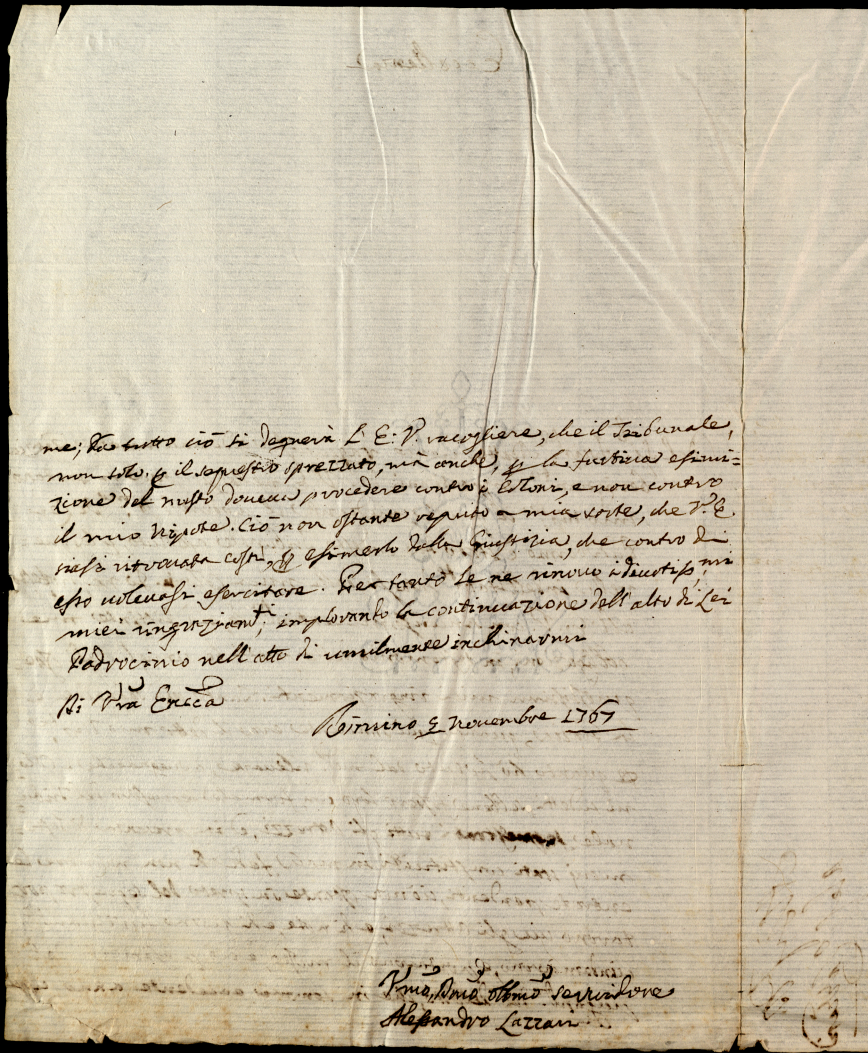 me; da tutto ciò si degnerà L'E: V. racogliere, che il Tribunale,
non solo p il sequestro sprezzato, mà anche, p la furtiva esimi=
zione del mosto doueua procedere contro i Coloni, e non contro
il mio Nipote. Ciò non ostante reputo a mia sorte, che V. E.
siasi ritrouata costì, p esimerlo dalla Giustizia, che contro di
esso voleuasi esercitare. Per tanto le ne rinouo i diuotiss.mi
miei ringraziam.ti, implorando la continuazione dell'alto di Lei
Padrocinio nell'atto di umilmente inchinarmi
Di Vra Eccza
Rimino 9 Novembre 1767
Vmo, Dmo obbmo servidore
Alessandro Lazzari